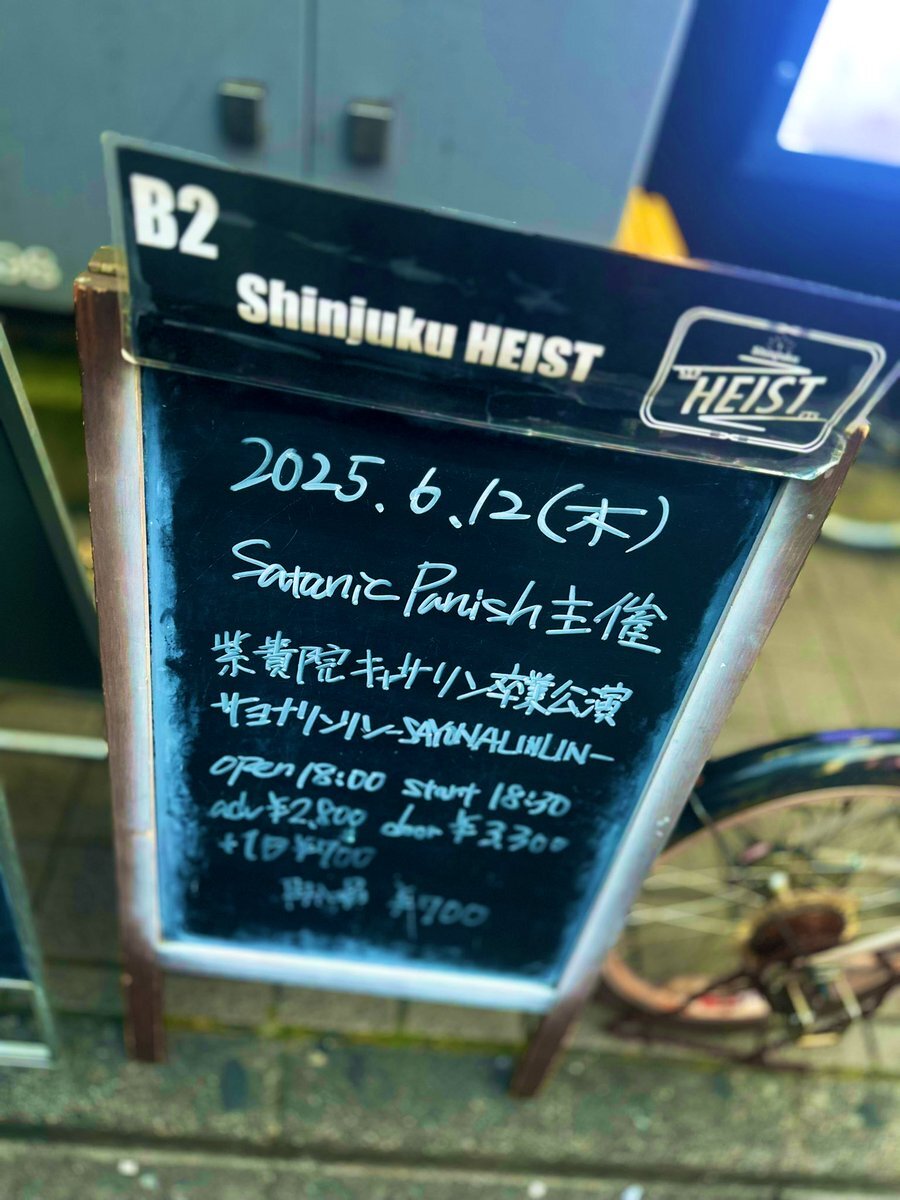 B2
Shinjuku HEIST
Shinjuku
HEIST
2025.6.12(木)
Satanic Panish 主催
紫貴院キャサリン卒業公演
サヨナリンリン-SAYONALINLIN-
open 18:00 start 18:30
adv ¥2,800 door ¥3,300
+1D ¥700
再入場 ¥700